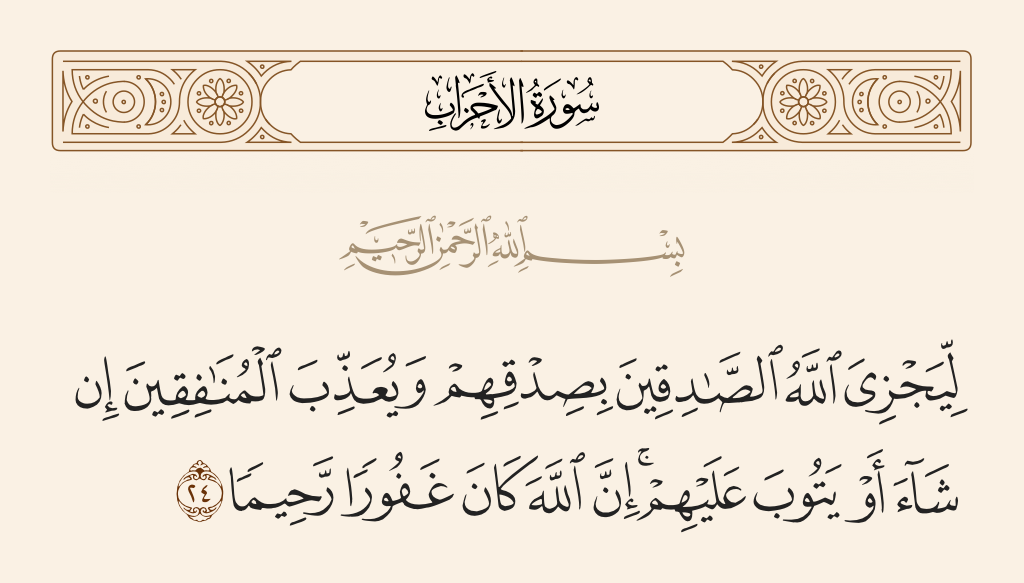 سُورَةُ الأَحْزَابِ
بِسْمِ ٱللَّهِ ٱلرَّحْمَٰنِ ٱلرَّحِيمِ
لِّيَجْزِىَ ٱللَّهُ ٱلصَّـٰدِقِينَ بِصِدْقِهِمْ وَيُعَذِّبَ ٱلْمُنَـٰفِقِينَ إِن
شَآءَ أَوْ يَتُوبَ عَلَيْهِمْ ۚ إِنَّ ٱللَّهَ كَانَ غَفُورًا رَّحِيمًا ٢٤